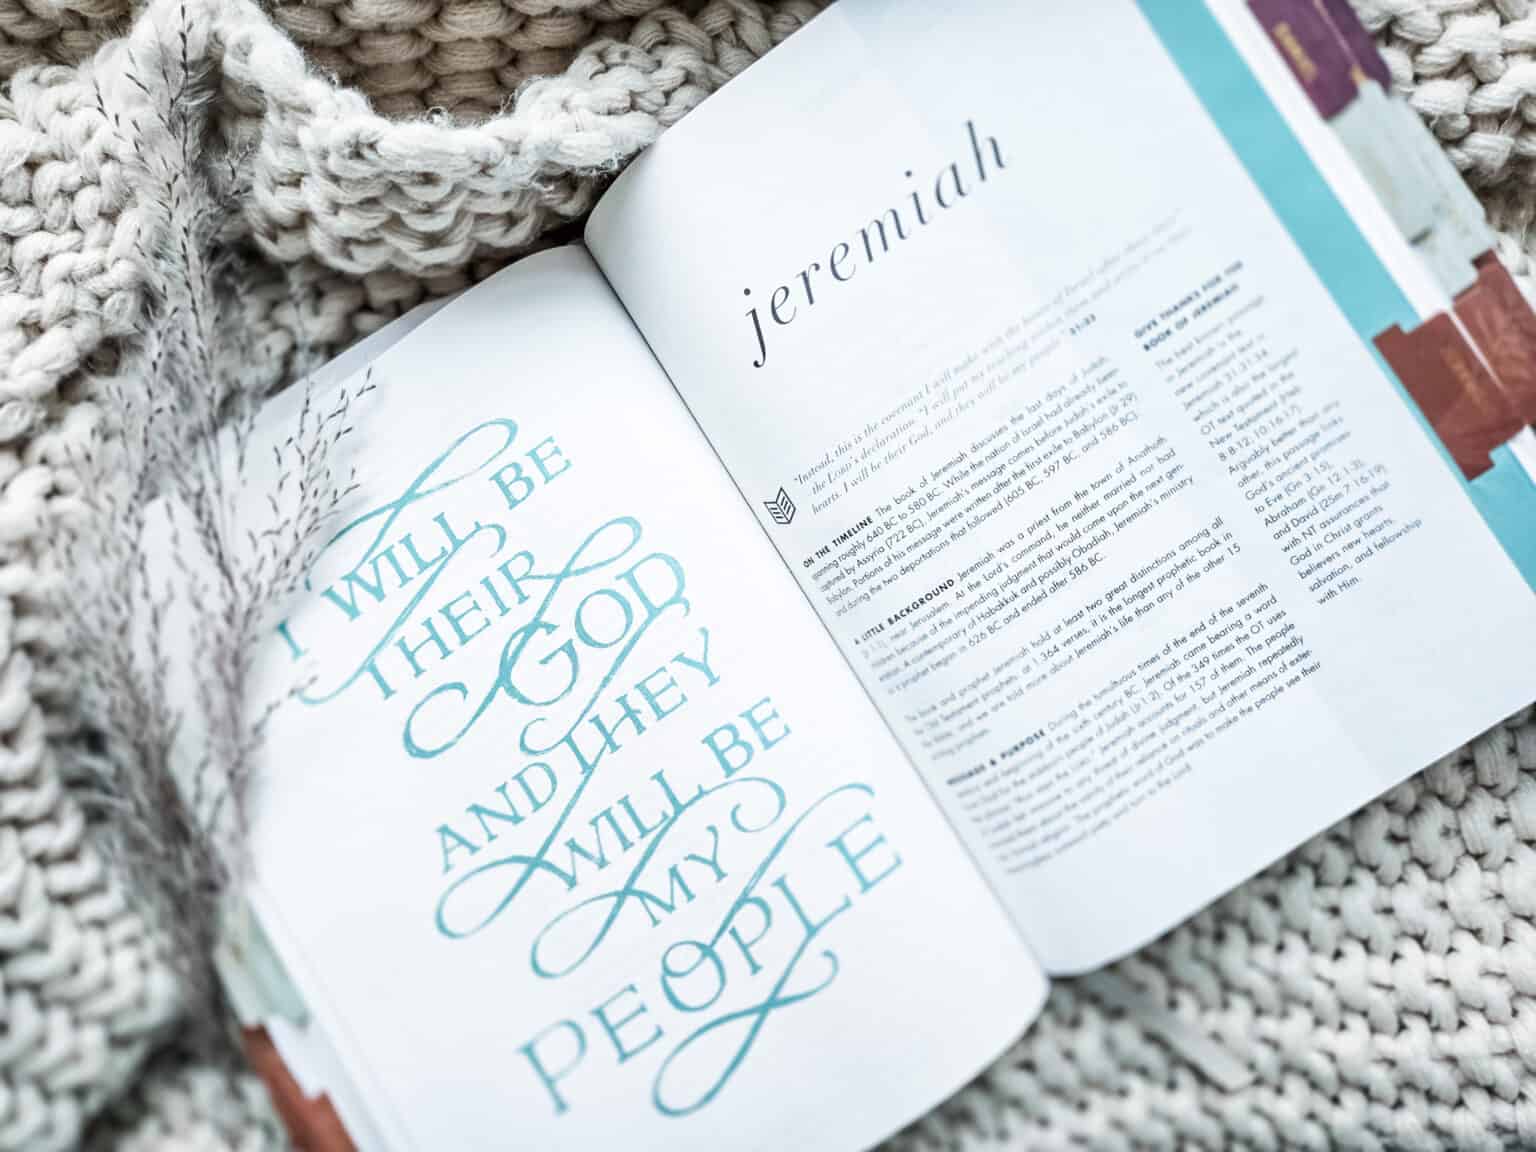 I WILL BE
THEIR
GOD
AND THEY
WILL BE
MY
PEOPLE
jeremiah
"Instead, this is the covenant I will make with the house of Israel after those
the LORD's declaration. "I will put my teaching within them and write it on their
hearts. I will be their God, and they will be my people." 31:33
ON THE TIMELINE The book of Jeremiah discusses the last days of Judah,
spanning roughly 640 BC to 580 BC. While the nation of Israel had already been
captured by Assyria (722 BC), Jeremiah's message comes before Judah's exile to
Babylon. Portions of his message were written after the first exile to Babylon (Jr 29)
and during the two deportations that followed (605 BC, 597 BC, and 586 BC).
A LITTLE BACKGROUND Jeremiah was a priest from the town of Anathoth
(Jr 1:1), near Jerusalem. At the Lord's command, he neither married nor had
children because of the impending judgment that would come upon the next gen-
eration. A contemporary of Habakkuk and possibly Obadiah, Jeremiah's ministry
as a prophet began in 626 BC and ended after 586 BC.
The book and prophet Jeremiah hold at least two great distinctions among all
the Old Testament prophets: at 1,364 verses, it is the longest prophetic book in
the Bible, and we are told more about Jeremiah's life than any of the other 15
writing prophets.
MESSAGE & PURPOSE During the tumultuous times of the end of the seventh
century and beginning of the sixth century BC, Jeremiah came bearing a word
from God for the stubborn people of Judah (Jr 1:2). Of the 349 times the OT uses
the phrase "thus says the LORD," Jeremiah accounts for 157 of them. The people
were not immune to any threat of divine judgment, but Jeremiah repeatedly
warned them about the vanity of their reliance on rituals and other means of exter-
nal religion. The prophetic word of God was to make the people see their
and turn to the Lord.
GIVE THANKS FOR THE
BOOK OF JEREMIAH
The best known passage
in Jeremiah is the
new covenant text in
Jeremiah 31:31-34
which is also the longest
OT text quoted in the
New Testament (Heb
8:8-12; 10:16-17).
Arguably better than any
other, this passage links
God's ancient promises
to Eve (Gn 3:15),
Abraham (Gn 12:1-3),
and David (2Sm 7:16-19)
with NT assurances that
God in Christ grants
believers new hearts,
salvation, and fellowship
with Him.